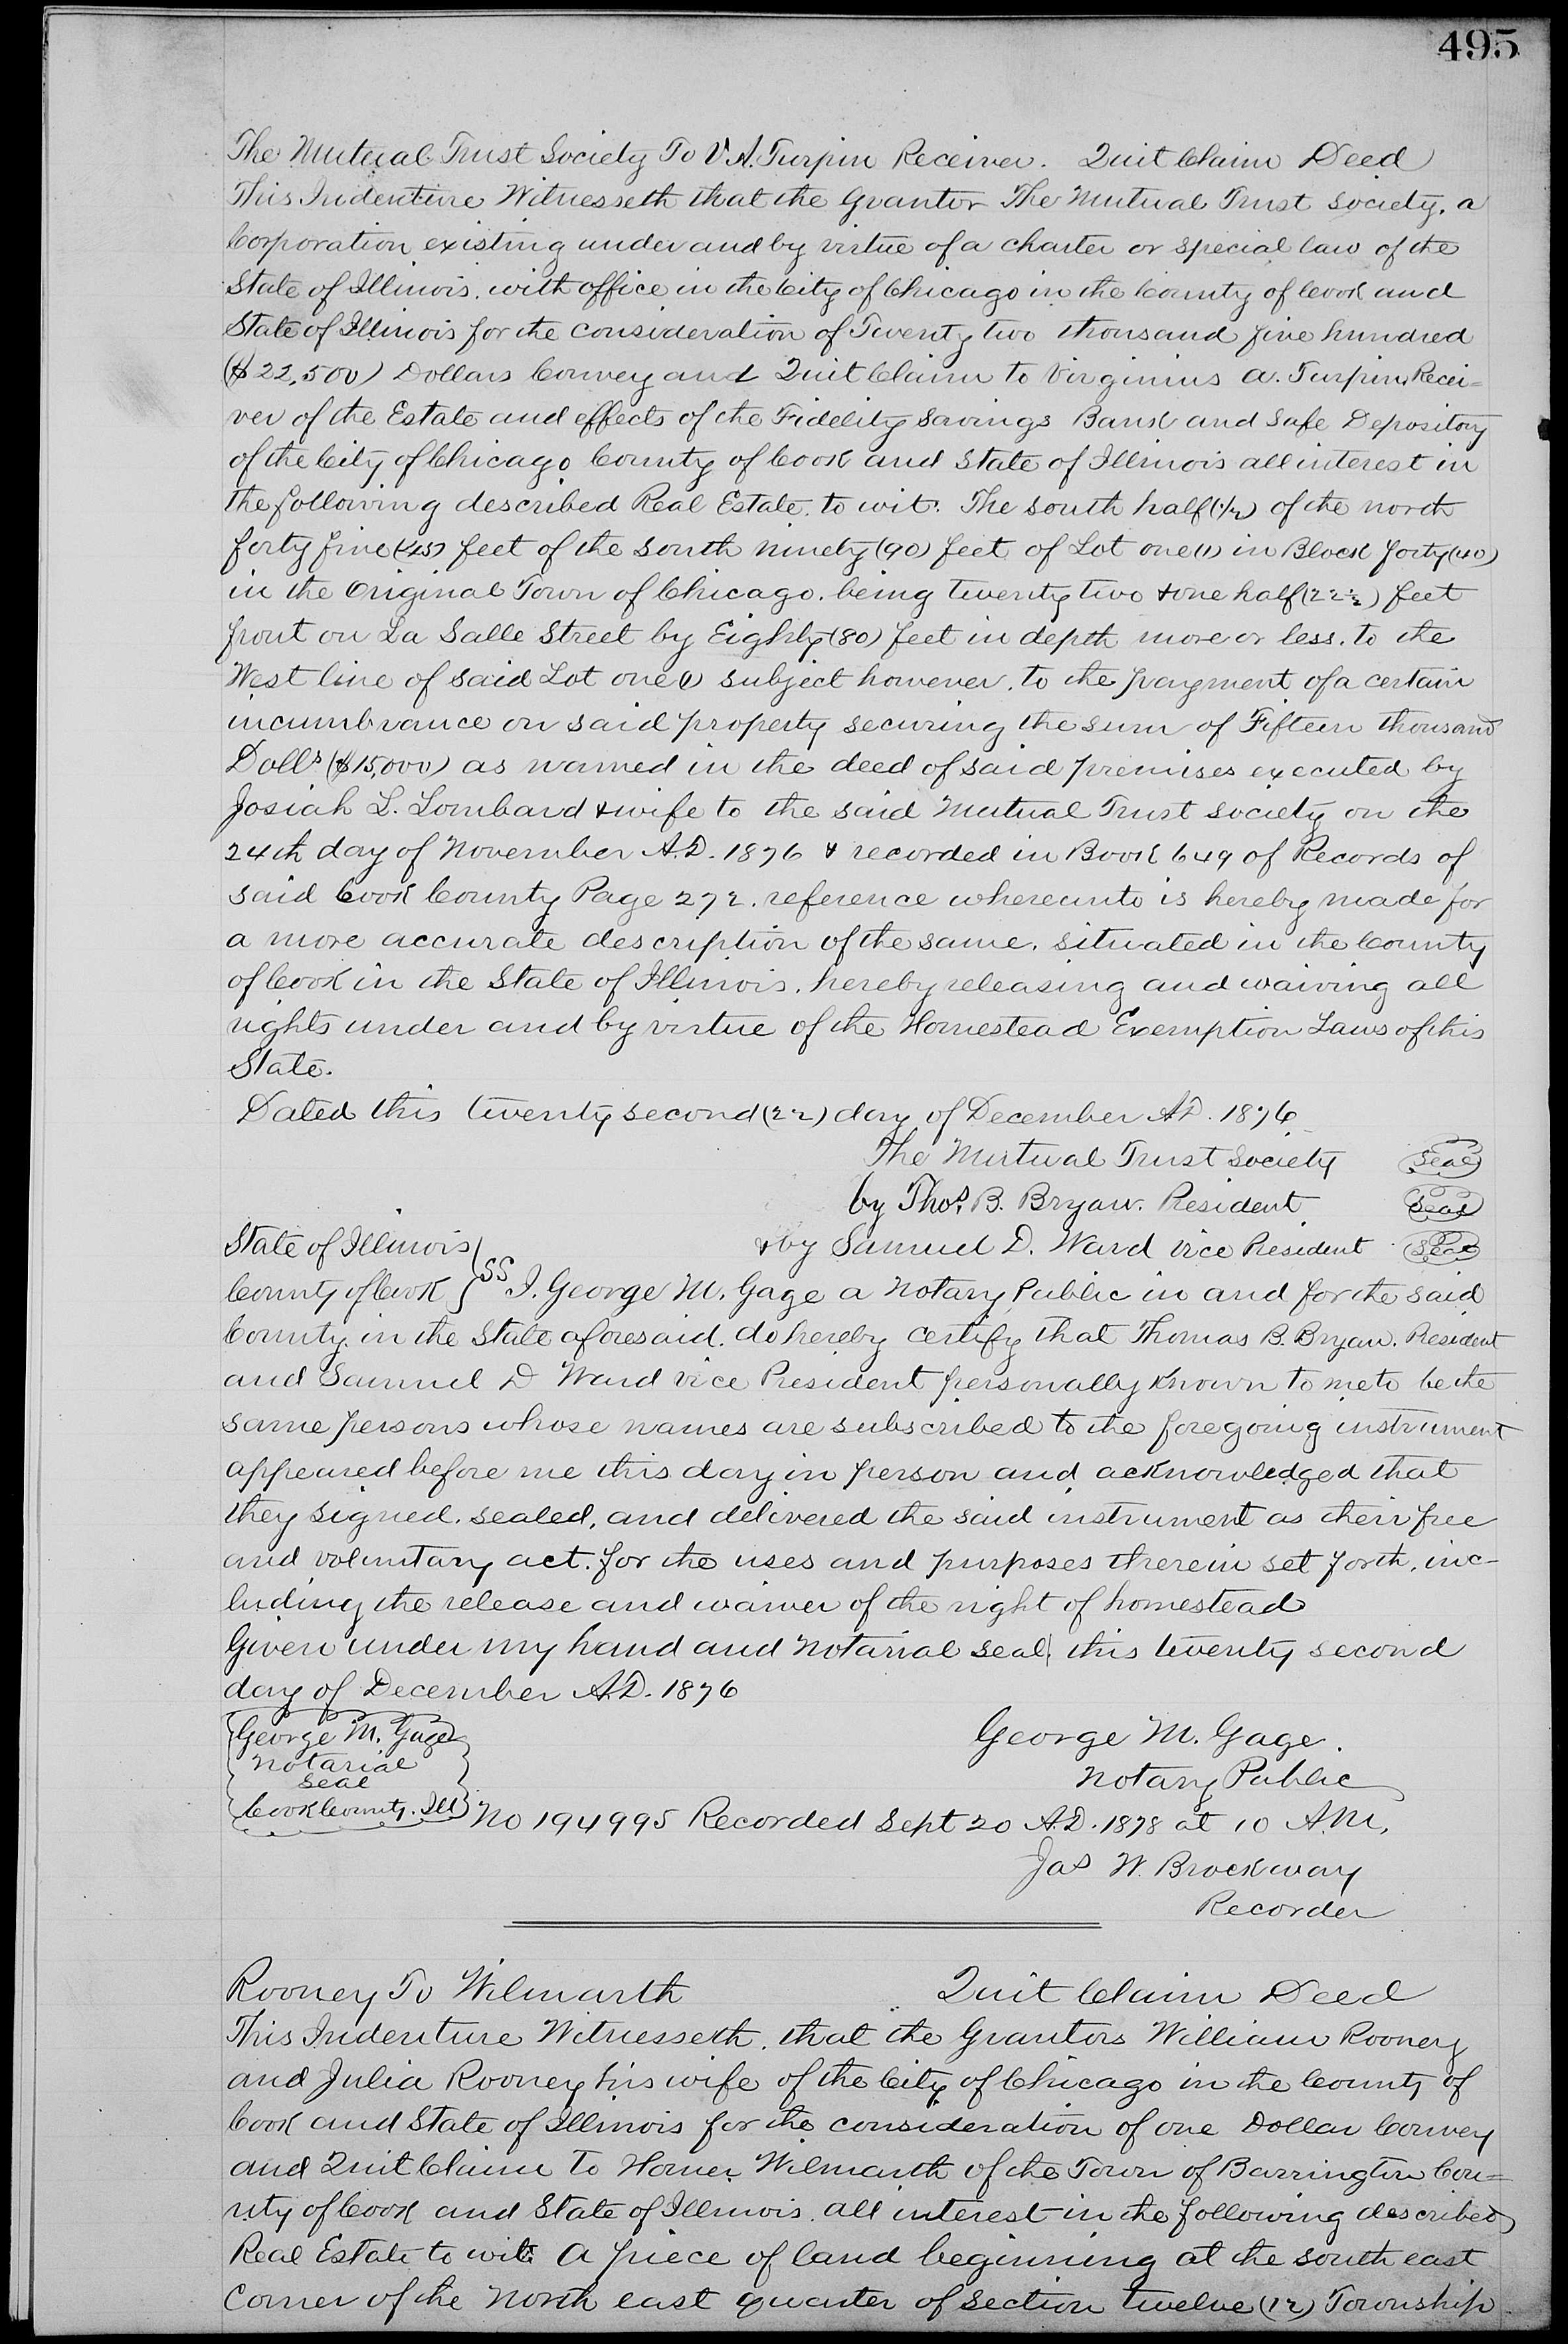 495
The Mutual Trust Society To V. A. Turpin Receiver. Quit Claim Deed
This Indenture Witnesseth that the Grantor The Mutual Trust Society, a
Corporation existing under and by virtue of a charter or special law of the
State of Illinois, with office in the City of Chicago in the County of Cook and
State of Illinois for the consideration of Twenty two thousand five hundred
($22,500) Dollars Convey and Quit Claim to Virginius A. Turpin, Recei=
ver of the Estate and effects of the Fidelity Savings Bank and Safe Depository
of the City of Chicago County of Cook and State of Illinois all interest in
the following described Real Estate, to wit: The south half (1/2) of the north
forty five (45) feet of the south ninety (90) feet of Lot one (1) in Block forty (40)
in the Original Town of Chicago, being twenty two & one half (22 1/2) feet
front on La Salle Street by Eighty (80) feet in depth more or less, to the
West line of said Lot one (1) subject however, to the payment of a certain
incumbrance on said property securing the sum of Fifteen thousand
Dolls ($15,000) as named in the deed of said premises executed by
Josiah L. Lombard & wife to the said Mutual Trust Society on the
24th day of November A.D. 1876 & recorded in Book 649 of Records of
said Cook County Page 272, reference whereunto is hereby made for
a more accurate description of the same, situated in the County
of Cook in the State of Illinois, hereby releasing and waiving all
rights under and by virtue of the Homestead Exemption Laws of this
State.
Dated this twenty second (22) day of December A.D. 1876
The Mutual Trust Society Seal
by Thos. B. Bryan. President Seal
& by Samuel D. Ward Vice President Seal
State of Illinois
County of Cook } SS I, George M. Gage a Notary Public in and for the said
County, in the State aforesaid, do hereby certify that Thomas B. Bryan, President
and Samuel D Ward Vice President personally known to me to be the
same persons whose names are subscribed to the foregoing instrument
appeared before me this day in person and acknowledged that
they signed, sealed, and delivered the said instrument as their free
and voluntary act, for the uses and purposes therein set forth, inc-
luding the release and waiver of the right of homestead
Given under my hand and Notarial seal, this twenty second
day of December A.D. 1876
George M. Gage
Notarial
Seal
Cook County. Ill
George M. Gage.
Notary Public
No 194995 Recorded Sept 20 A.D. 1878 at 10 A.M.
Jas W. Brockway
Recorder
Rooney To Wilmarth Quit Claim Deed
This Indenture Witnesseth, that the Grantors William Rooney
and Julia Rooney his wife of the City of Chicago in the County of
Cook and State of Illinois for the consideration of one Dollar Convey
and Quit Claim to Homer Wilmarth of the Town of Barrington Cou=
nty of Cook and State of Illinois, all interest in the following described
Real Estate to wit: A piece of land beginning at the south east
corner of the North east quarter of section twelve (12) Township